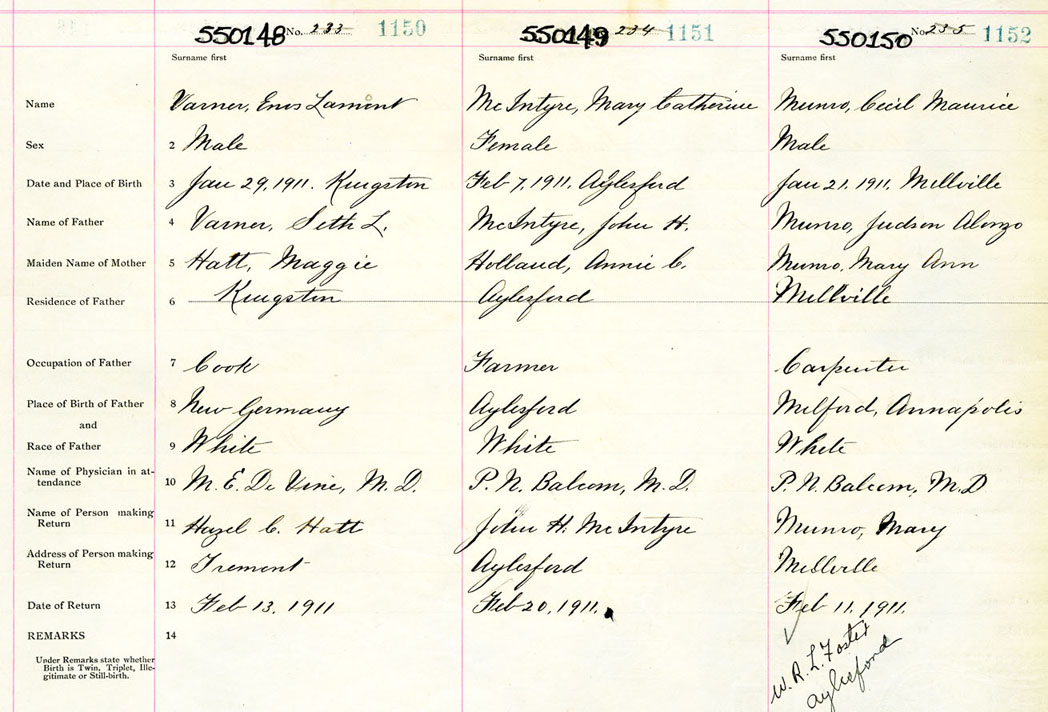 550148 No. 233 1150 550149 234 1151 550150 No. 235 1152
Surname first Surname first Surname first
Name Varner, Enos Lamont McIntyre, Mary Catherine Munro, Cecil Maurice
Sex 2 Male Female Male
Date and Place of Birth 3 Jan 29, 1911. Kingston Feb 7, 1911. Aylesford Jan 21, 1911, Millville
Name of Father 4 Varner, Seth L. McIntyre, John H. Munro, Judson Alonzo
Maiden Name of Mother 5 Hatt, Maggie Holland, Annie C. Munro, Mary Ann
Residence of Father 6 Kingston Aylesford Millville
Occupation of Father 7 Cook Farmer Carpenter
Place of Birth of Father 8 New Germany Aylesford Milford, Annapolis
and
Race of Father 9 White White White
Name of Physician in at-
tendance 10 M. E. De Vine, M. D. P. N. Balcom, M. D. P. N. Balcom, M. D
Name of Person making
Return 11 Hazel C. Hatt John H. McIntyre Munro, Mary
Address of Person making
Return 12 Tremont Aylesford Millville
Date of Return 13 Feb 13, 1911 Feb 20, 1911. Feb 11, 1911.
REMARKS 14
Under Remarks state whether
Birth is Twin, Triplet, Ille-
gitimate or Still-birth.
W. R. L. Foster
Aylesford